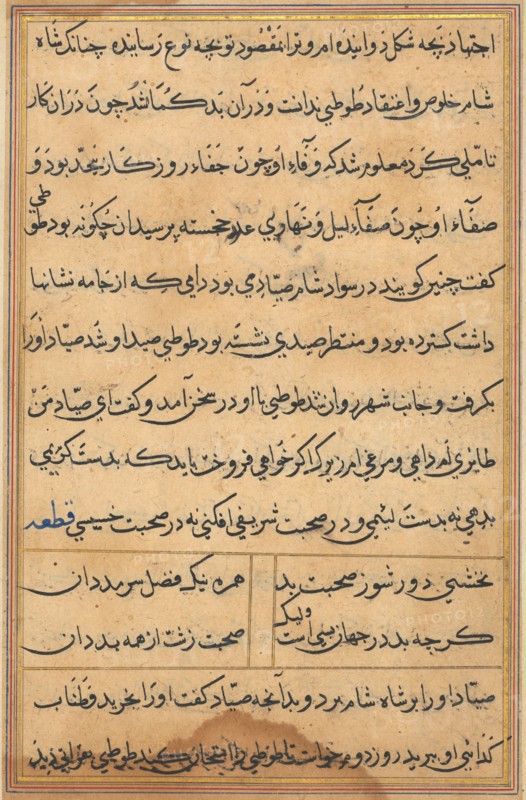 اجتهاد بچه شکل دوانیده ام و ترا بمقصود تو بچه نوع رسانیده چنانک شاه
شام خلوص و اعتقاد طوطی ندانست و در آن بد کمان شد چون در آن کار
تاملی کرد معلوم شد که وفاء او چون جفاء روزکار بیحد بود و
صفاء او چون صفاء لیل و نهاوی عدد خجسته پرسید ان چکونه بود طوطی
کفت چنین کویند در سواد شام صیادی بود دامی که از جامه نشانها
داشت کسترده بود و منتظر صیدی نشسته بود طوطی صید او شد صیاد اورا
بکرفت و جانب شهر روان شد طوطی با او در سخن آمد و کفت ای صیاد من
طایری ام داهی و مرغی ام زیرک اکر خواهی فروخت باید که بدست کریمی
بدهی نه بدست لئیمی و در صحبت شریفی افکنی نه در صحبت خسیسی قطعه
نخشبی دور شو ز صحبت بد همره نیک فضل سرمد دان
کرچه بد در جهان بسی است ولیک صحبت زشت از همه بد دان
صیاد اورا بر شاه شام برد و بدانچه صیاد کفت اورا بخرید و طناب
کدائی او ببرید روز دوم خواست تا طوطی را امتحان کند طوطی